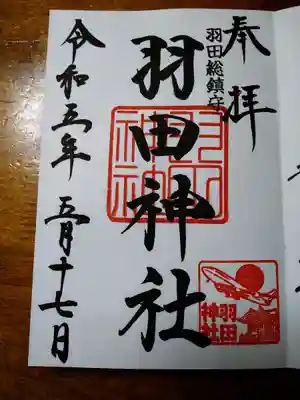 奉拝
羽田総鎮守
羽田神社
令和五年 五月十七日
羽田
神社